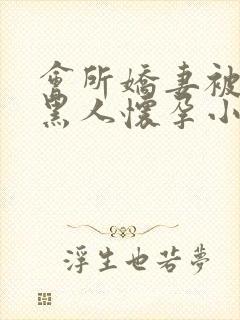 會所嬌妻被
黑人懷孕小
浮生也若夢